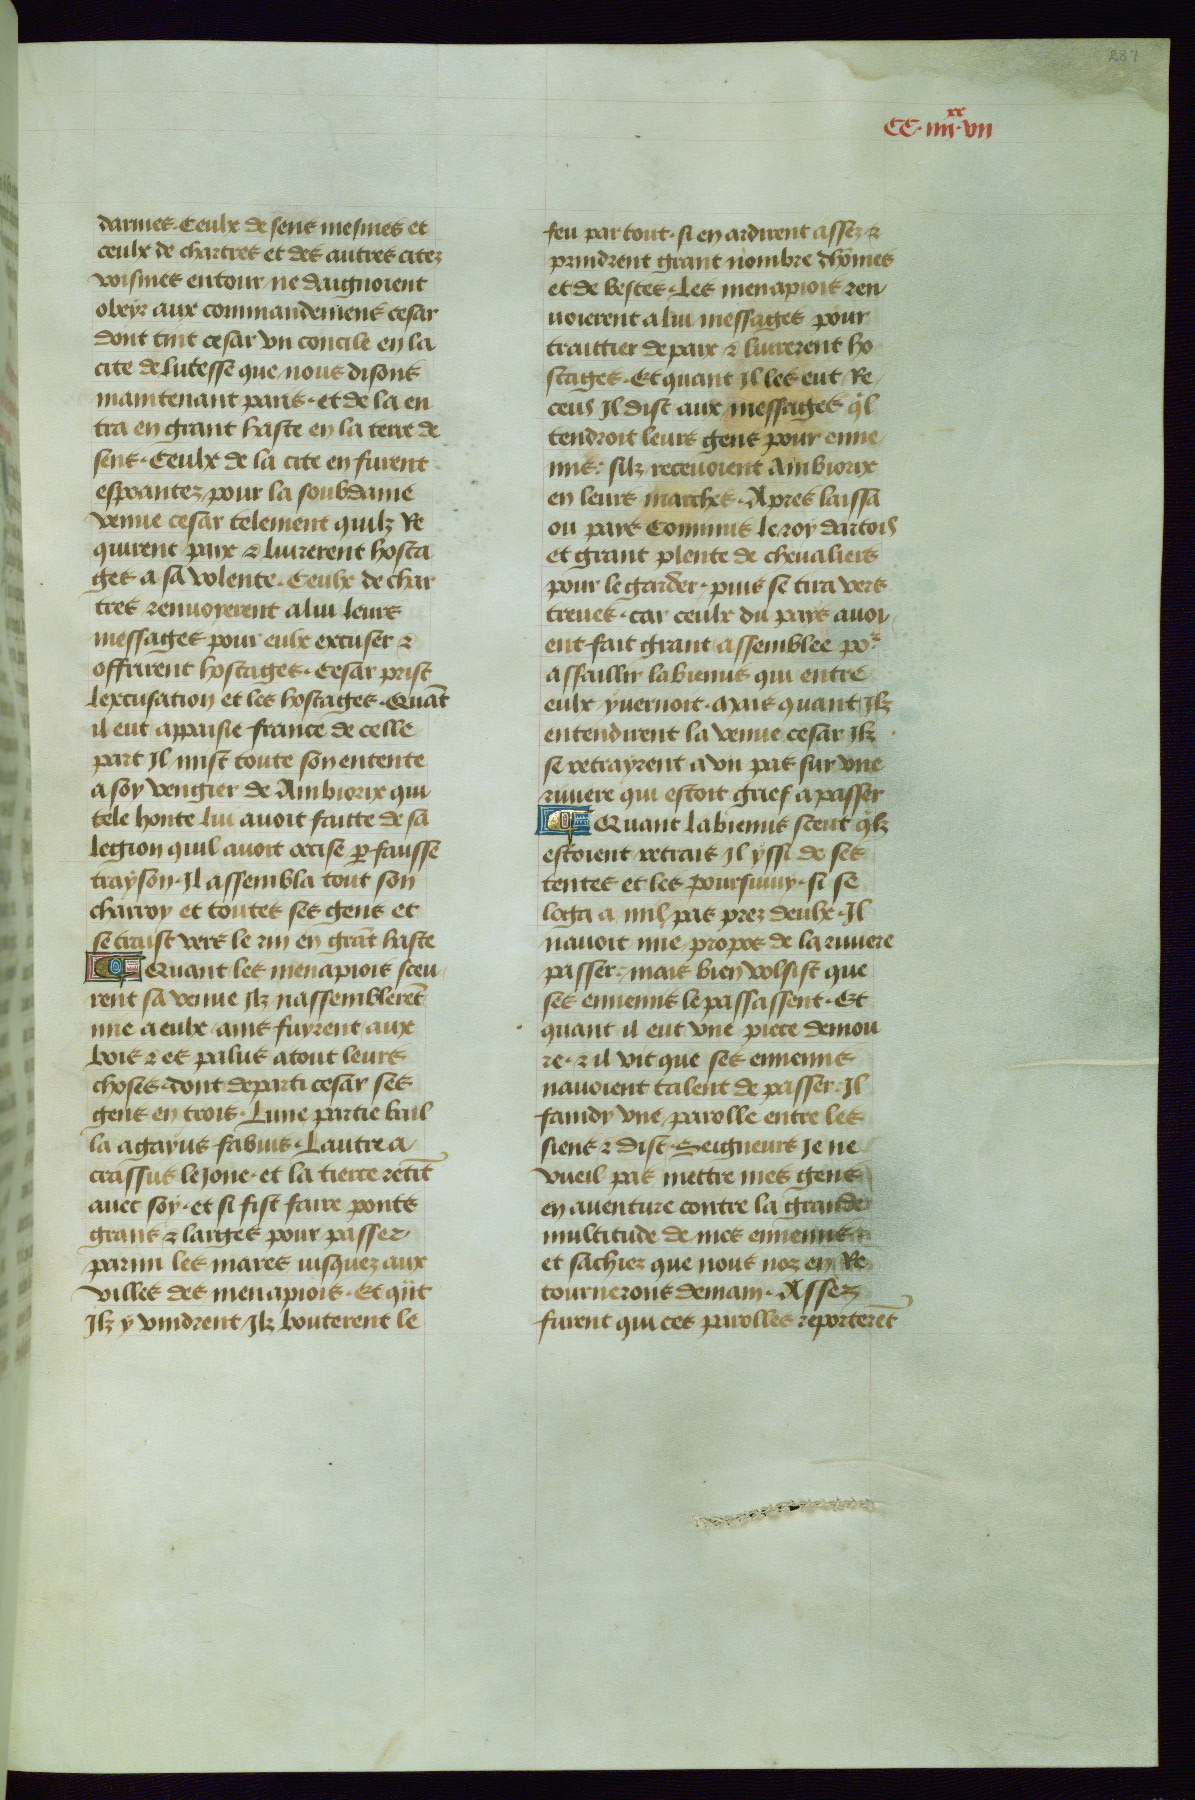 287
CC·iiii^xx·vii
darmes. Ceulx de sens mesmes et
ceulx de chartres et des autres citez
voisines entour ne daignoient
obeyr aux commandemens cesar
dont tint cesar vn concile en la
cite de lutesse que nous disons
maintenant paris· et de la en
tra en grant haste en la terre de
sens· Ceulx de la cite en furent
espoantez pour la soubdaine
venue cesar telement quilz Re
quirent paix ⁊ liurerent hosta
ges a sa volente· Ceulx de char
tres renuoyerent a lui leurs
messages pour eulx excuser ⁊
offrirent hostages· Cesar prist
lexcusation et les hostages· Quāt
il eut appaisie france de celle
part Il mist toute son entente
a soy vengier de Ambiorix qui
tele honte lui auoit faitte de sa
legion quil auoit occise ꝑ fausse
trayson· Il assembla tout son
charroy et toutes ses gens et
se traist vers le rin en grāt haste
Quant les menapiois sceu
rent sa venue Ilz nassemblerēt
mie a eulx ains fuyrent aux
bois ⁊ es palus atout leurs
choses· dont departi cesar ses
gens en trois· Lune partie bail
la a gayus fabius· Lautre a
crassus le Jone· et la tierce retīt
auec soy· et si fist faire ponts
grans ⁊ larges pour passer
parmi les mares iusquez aux
villes des menapiois· Et qūt
Ilz y vindrent Ilz bouterent le
feu par tout· si en ardirent assez ⁊
prindrent grant nombre dhōmes
et de bestes· Les menapiois ren
uoierent a lui messages pour
traittier de paix ⁊ liurerent ho
stages· Et quant Il les eut Re
ceus Il dist aux messages q̄l
tendroit leurs gens pour enne
mis· silz receuoient Ambiorix
en leurs marches· Apres laissa
ou pays Commis le roy dartois
et grant plente de cheualiers
pour le garder· puis se tira vers
treues· car ceulx du pays auoi
ent fait grant assemblee poʳ
assaillir labienus qui entre
eulx yuernoit· Mais quant Ilz
entendirent la venue cesar Ilz
se retrayrent a vn pas sur vne
riuiere qui estoit grief a passer
Quant Labienus sceut q̄lz
estoient retrais Il yssi de ses
tentes et les poursuiuy· si se
loga a mil pas prez deulx· Il
nauoit mie propos de la riuiere
passer· mais bien volsist que
ses ennemis le passassent· Et
quant il eut vne piece demou
re· ⁊ il vit que ses ennemis
nauoient talent de passer· Il
faindy vne parolle entre les
siens ⁊ dist· Seigneurs Je ne
vueil pas mettre mes gens
en auenture contre la grande
multitude de mes ennemis
et sachiez que nous noz en Re
tournerons demain· Assez
furent qui ces parolles reporterēt